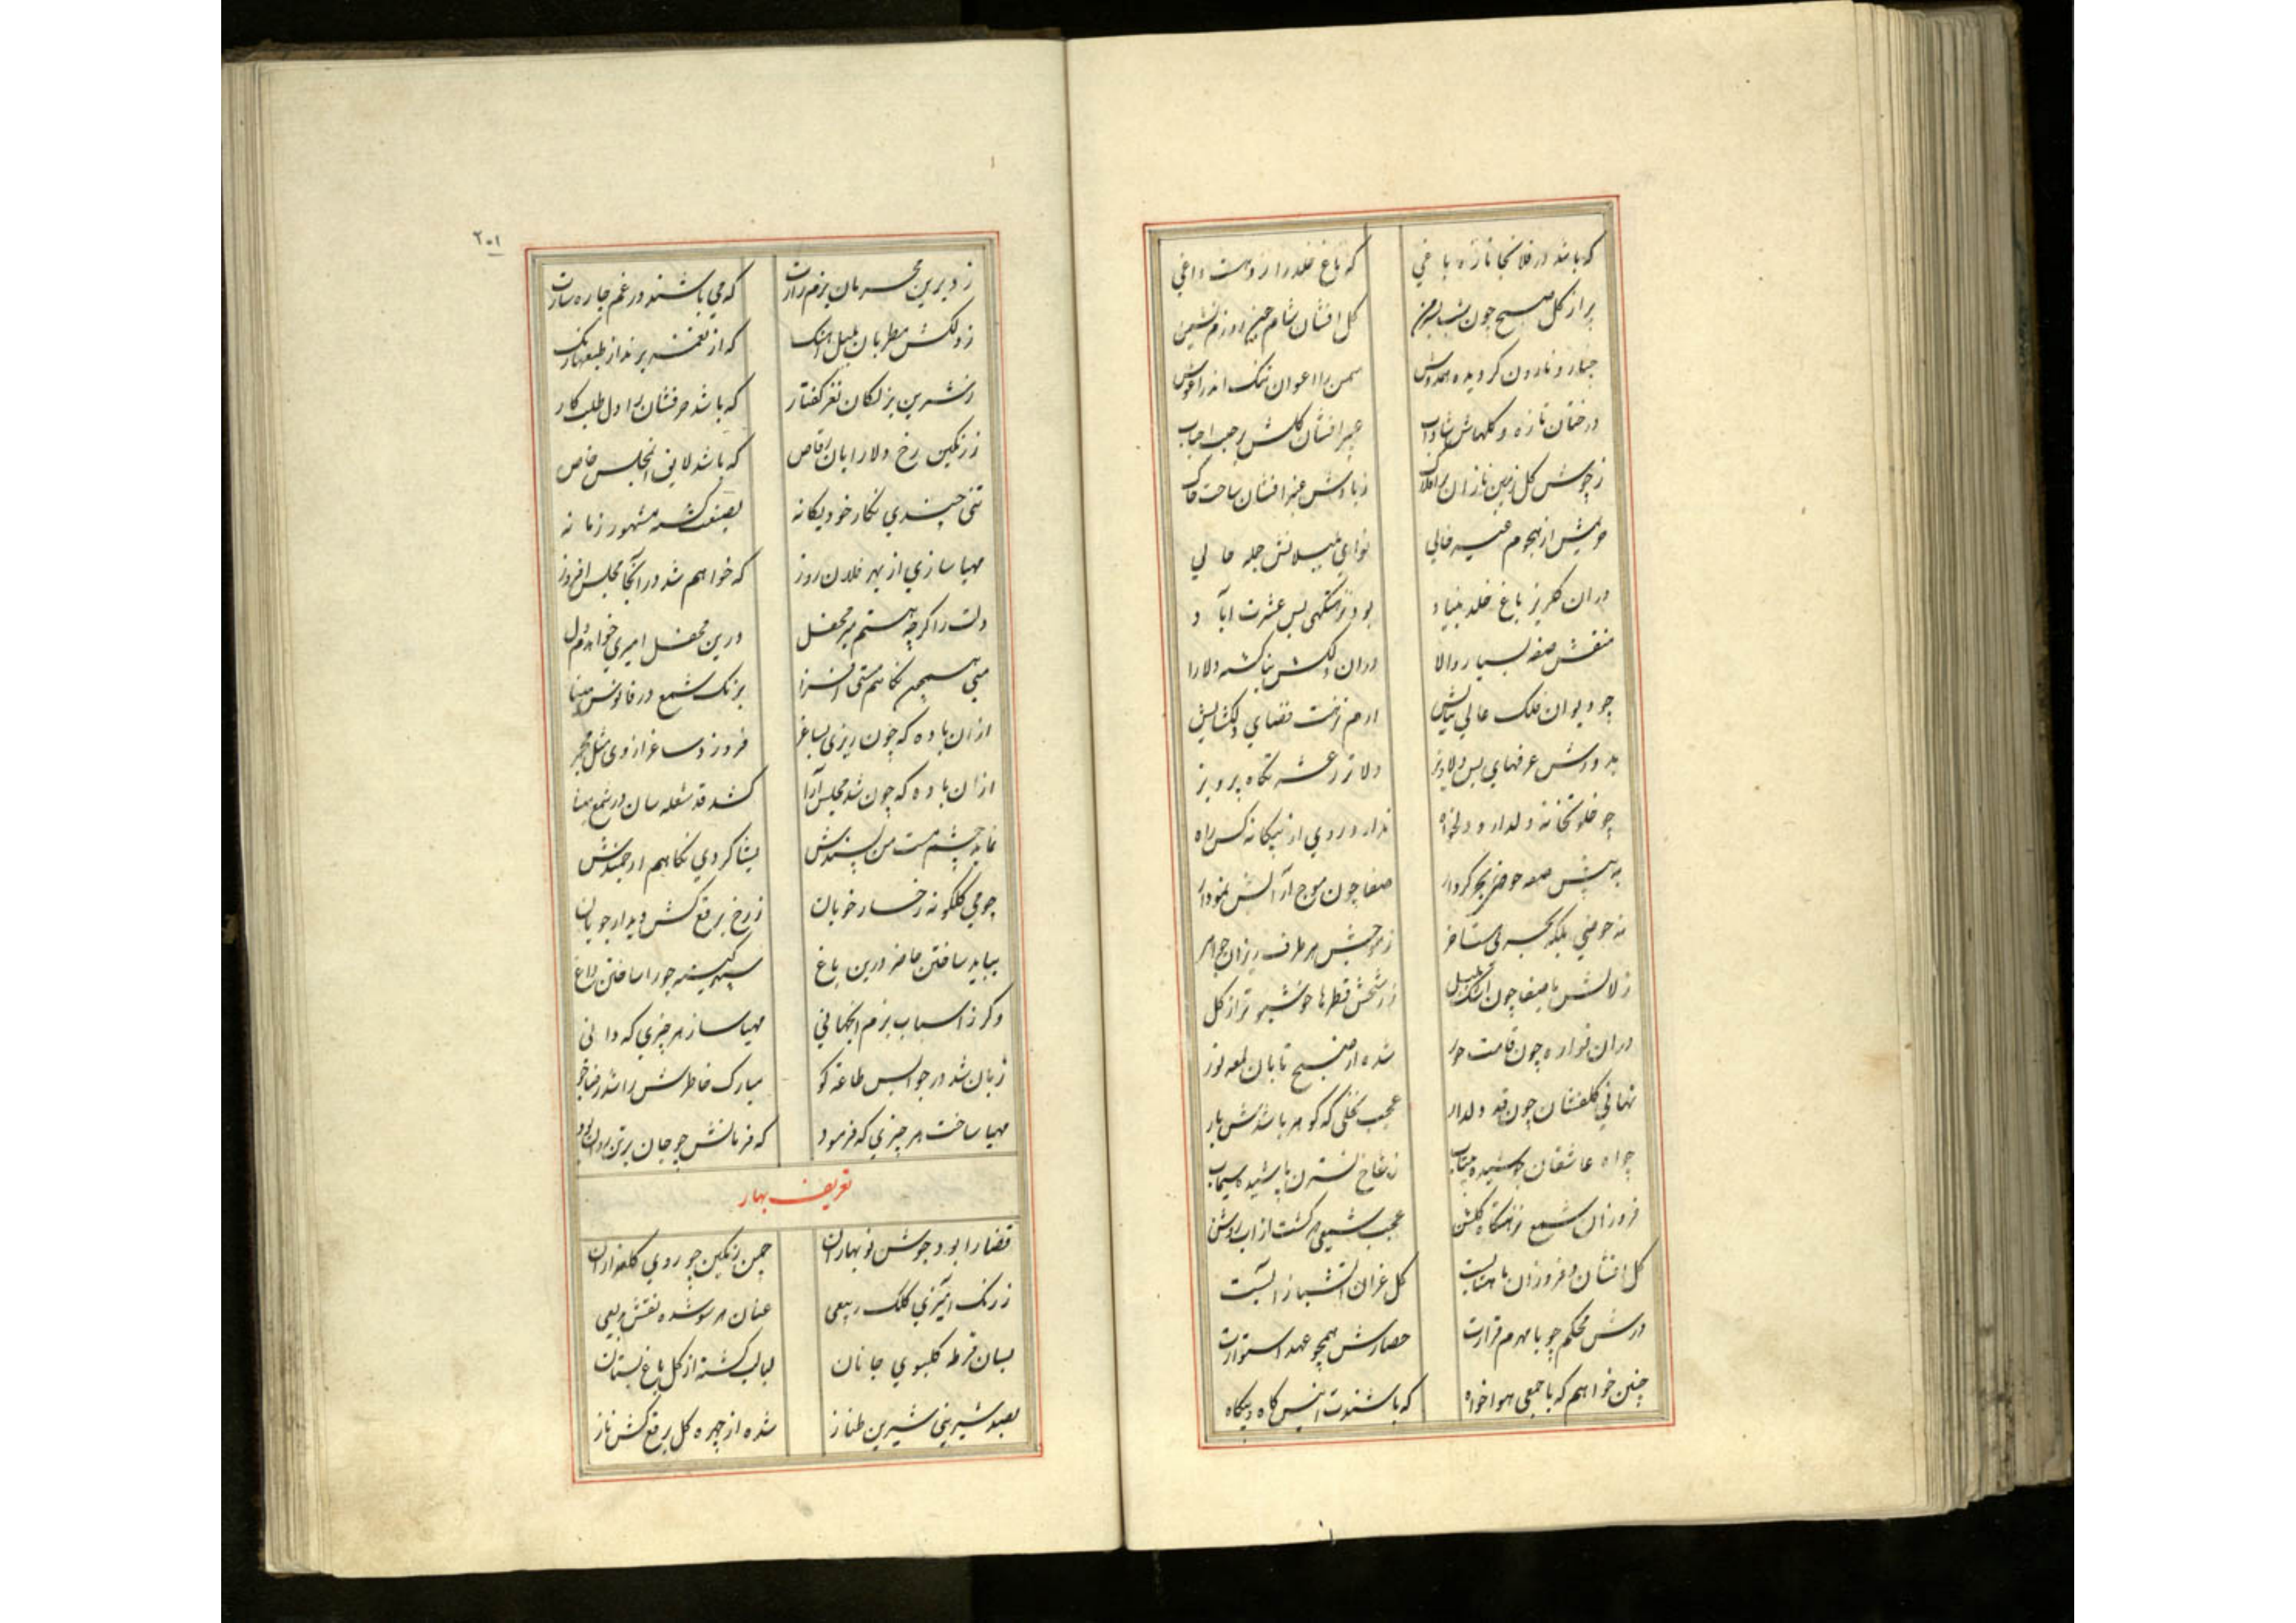 که باشد در فلانجا تازه باغی
که باغ خلد را زوهست داغی
پر از گل صبح چون شب
کل افشان شام چین
چنار و نارون کردیده همدوش
سمن را ارغوان تنک اندر اغوش
درختان تازه و کلهاش شاداب
عبیر افشان کلش
ز جوش کل زمین نازان بر افلاک
ز بادش عنبر افشان ساحت خاک
حریمش از هجوم غیر خالی
نوای بلبلانش جمله حالی
دران کلریز باغ خلد بنیاد
بود نزهتکهی بس عشرت آباد
منقش صفه بسیار والا
دران دلکش بنا کشته دلارا
چو دیوان فلک عالی بنایش
ارم نزهت فضای دلکشایش
بدورش غرفهای بس دلاویز
دلاتر ز عشرتکاه پرویز
چو خلوتخانه دلدار و دلخواه
ندارد روی از بیکانه کس راه
به پیش صفه حوضی بحر کردار
صفا چون موج از آبش نمودار
نه حوضی بلکه بحری
ز موجش هر طرف ریزان جواهر
زلالش با صفا چون اشک بلبل
ز رشحش قطرها خوشبوتر از کل
دران فواره چون قامت حور
شده از صبح تابان لمعه نور
نهالی کلفشان چون قد دلدار
عجب نخلی که کوهر باشدش بار
چو اه عاشقان
ز شاخ نسترن پاشیده سیماب
فروزان شمع نزهتکاه کلشن
عجب شمعی که کشت از اب روشن
کل افشان و فروزان
درش محکم چو با مهرم قرارت
حصارش همچو عهد استوارت
چنین خواهم که با جمعی هواخواه
که باشندت انیس کاه و بیکاه
۲۰۱
ز دیرین محرمان بزم رازت
که می باشند در غم چاره سازت
ز دلکش مطربان بلبل اهنک
که از نغمه برند از طبعها زنک
ز شیرین بذله کان نغز کفتار
که باشد حرفشان را دل طلبکار
ز رنکین رخ دلارایان رقاص
که باشد لایق مجلس خاص
تنی چندی بکار خود یکانه
بصنعت کشته مشهور زمانه
مهیا سازی از بهر فلان روز
که خواهم شد در آنجا مجلس افروز
دلت را کرچه هستم میر محفل
درین محفل امیری خواهدم دل
میی همچون نکاهم مستی افزا
برنک شمع در فانوس مینا
از ان باده که چون ریزی بساغر
فروزد ساغر از وی مثل مجمر
از ان باده که چون شد مجلس آرا
کشد قد شعله سان در شمع مینا
نماید چشم مست من پسندش
بشاکردی نکاهم ارجمندش
چو می کلکونه رخسار خوبان
ز رخ برقع کش دیدار جویان
بباید ساختن حاضر درین باغ
سپهر کینه جو را ساختن داغ
دکر ز اسباب بزم انچنانی
مهیا ساز هر چیزی که دانی
زبان شد در جوابس طاعه کو
مبارک خاطرش را شد رضا جو
مهیا ساخت هر چیزی که فرمود
که فرمانش چو جان بر تن روان بود
تعریف بهار
قضا را بود جوش نو بهاران
چمن رنکین چو روی کلعذاران
ز رنک آمیزی کلک ربیعی
عیان هر سو شده نقش بدیعی
بسان قرطه کلبوی جانان
لبالب کشته از کل باغ بستان
بصد شیرینی شیرین طناز
شده از چهره کل برقع کش ناز